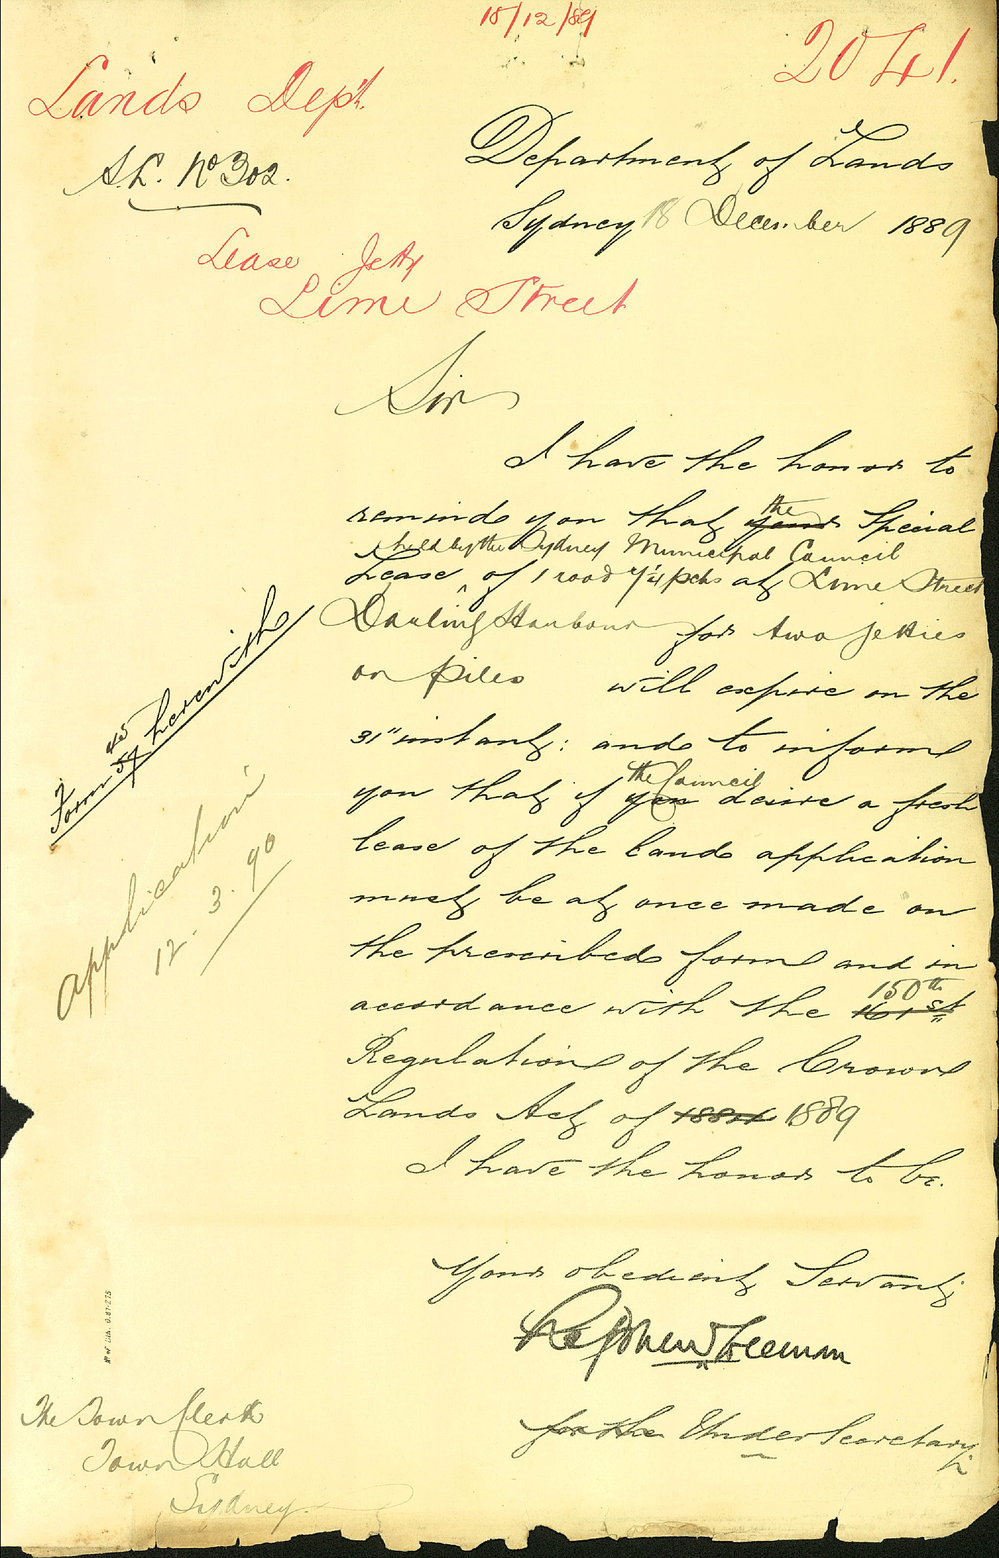 18/12/89
2041.
Lands Dept.
S.L. No 302.
Department of Lands
Sydney 18 December 1889
Lease Jetty
Lime Street
Sir
I have the honor to
remind you that your the Special
Lease held by the Sydney Municipal Council of 1 rood 7¼ pchs at Lime Street
Darling Harbour for two jetties
on piles will expire on the
31" instant: and to inform
you that if you the Council desire a fresh
lease of the land application
must be at once made on
the prescribed form and in
accordance with the 161st 150th
Regulation of the Crown
Lands Act of 1884 1889
I have the honor to be.
Your obedient Servant,
Stephen Freeman
for the Under Secretary
Form 45 herewith
Application
12.3.90
The Town Clerk
Town Hall
Sydney.